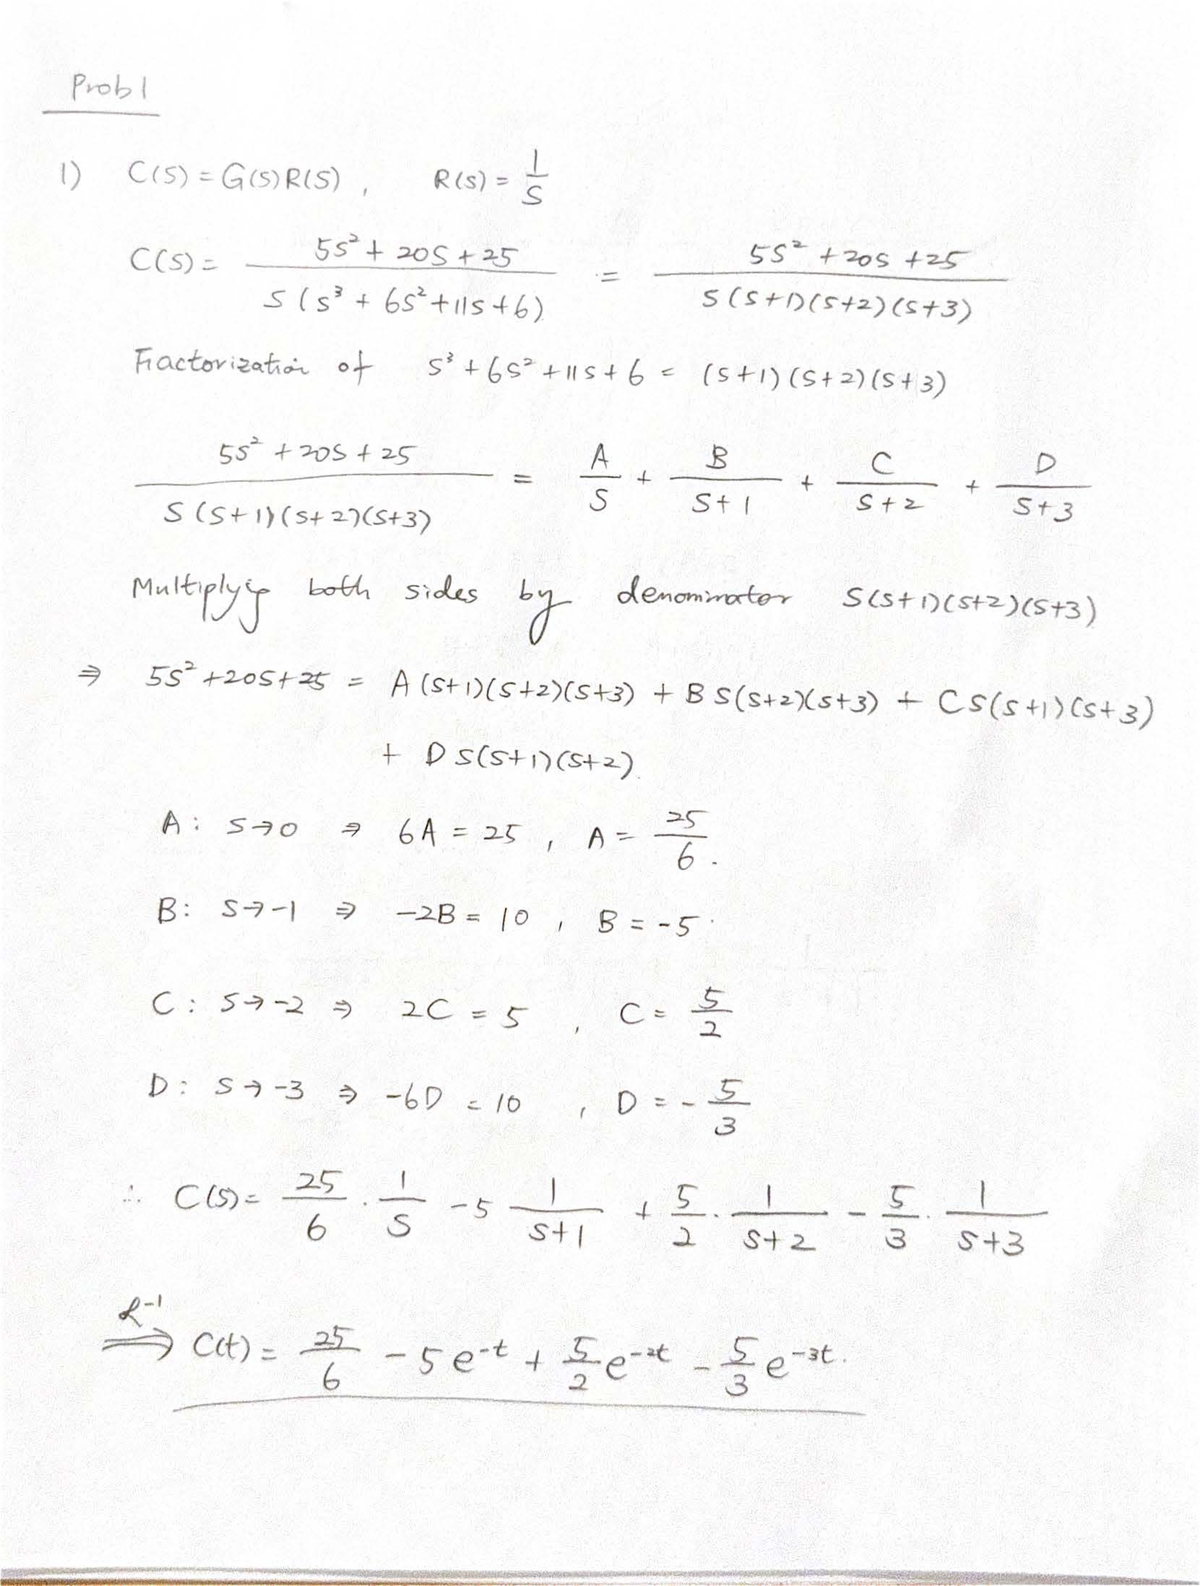 Prob 1
1) C(S) = G(S)R(S) , R(S) = 1/S
C(S) = (5S² + 20S + 25) / (S(S³ + 6S² + 11S + 6)) = (5S² + 20S + 25) / (S(S+1)(S+2)(S+3))
Fractorization of S³ + 6S² + 11S + 6 = (S+1)(S+2)(S+3)
(5S² + 20S + 25) / (S(S+1)(S+2)(S+3)) = A/S + B/(S+1) + C/(S+2) + D/(S+3)
Multiplying both sides by denominator S(S+1)(S+2)(S+3)
⇒ 5S² + 20S + 25 = A(S+1)(S+2)(S+3) + B S(S+2)(S+3) + C S(S+1)(S+3)
+ D S(S+1)(S+2)
A: S→0 ⇒ 6A = 25 , A = 25/6 .
B: S→-1 ⇒ -2B = 10 , B = -5 .
C: S→-2 ⇒ 2C = 5 , C = 5/2
D: S→-3 ⇒ -6D = 10 , D = -5/3
∴ C(S) = 25/6 · 1/S - 5 1/(S+1) + 5/2 · 1/(S+2) - 5/3 · 1/(S+3)
ℒ⁻¹ ⇒ C(t) = 25/6 - 5e^(-t) + 5/2 e^(-2t) - 5/3 e^(-3t) .